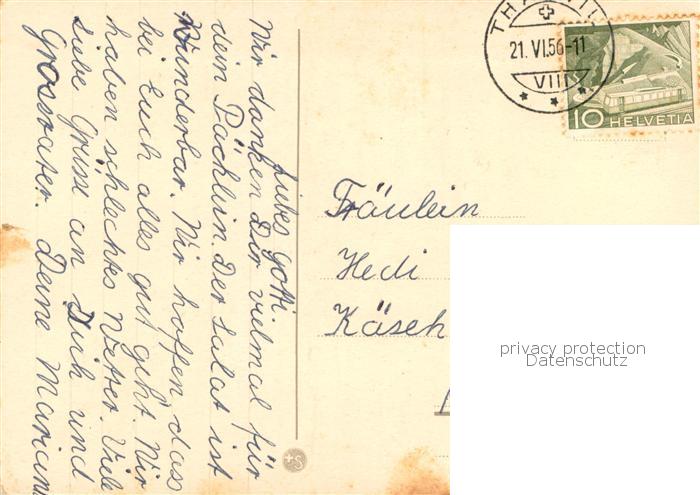 Liebes Gotti.
Wir danken Dir vielmal für
dein Päcklein. Der Salat ist
Wunderbar. Wir hoffen dass
bei Euch alles gut geht. Wir
haben schlechtes Wetter. Viele
liebe Grüsse an Dich und
Grossvater. Deine Mariann
THALWIL
21. VI. 56-11
VIII
10 HELVETIA
Fräulein
Hedi
Käseh
privacy protection
Datenschutz
+S